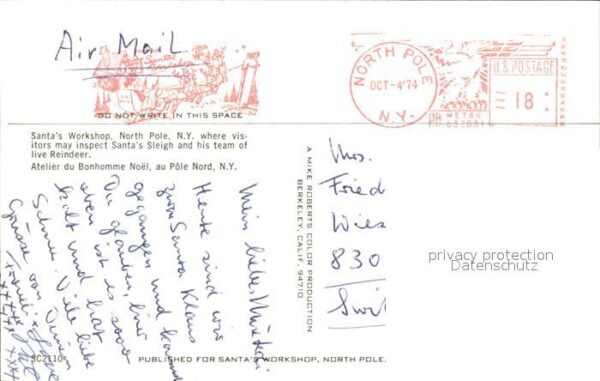 Air Mail
DO NOT WRITE IN THIS SPACE
NORTH POLE
OCT-4'74
N.Y.
U.S. POSTAGE
18
PB METER
Santa's Workshop, North Pole, N.Y. where vis-
itors may inspect Santa's Sleigh and his team of
live Reindeer.
Atelier du Bonhomme Noël, au Pôle Nord, N.Y.
Mein liebes
Heute sind wir
zum Santa Klaus
gegangen und kannst
Du glauben, hier
oben ist es sooo
kalt und hat
Schnee. Viele liebe
Grüsse von Deinen
A MIKE ROBERTS COLOR PRODUCTION
BERKELEY, CALIF. 94710
Mrs.
Fried
Wies
830
Swit
privacy protection
Datenschutz
SC2110
PUBLISHED FOR SANTA'S WORKSHOP, NORTH POLE,